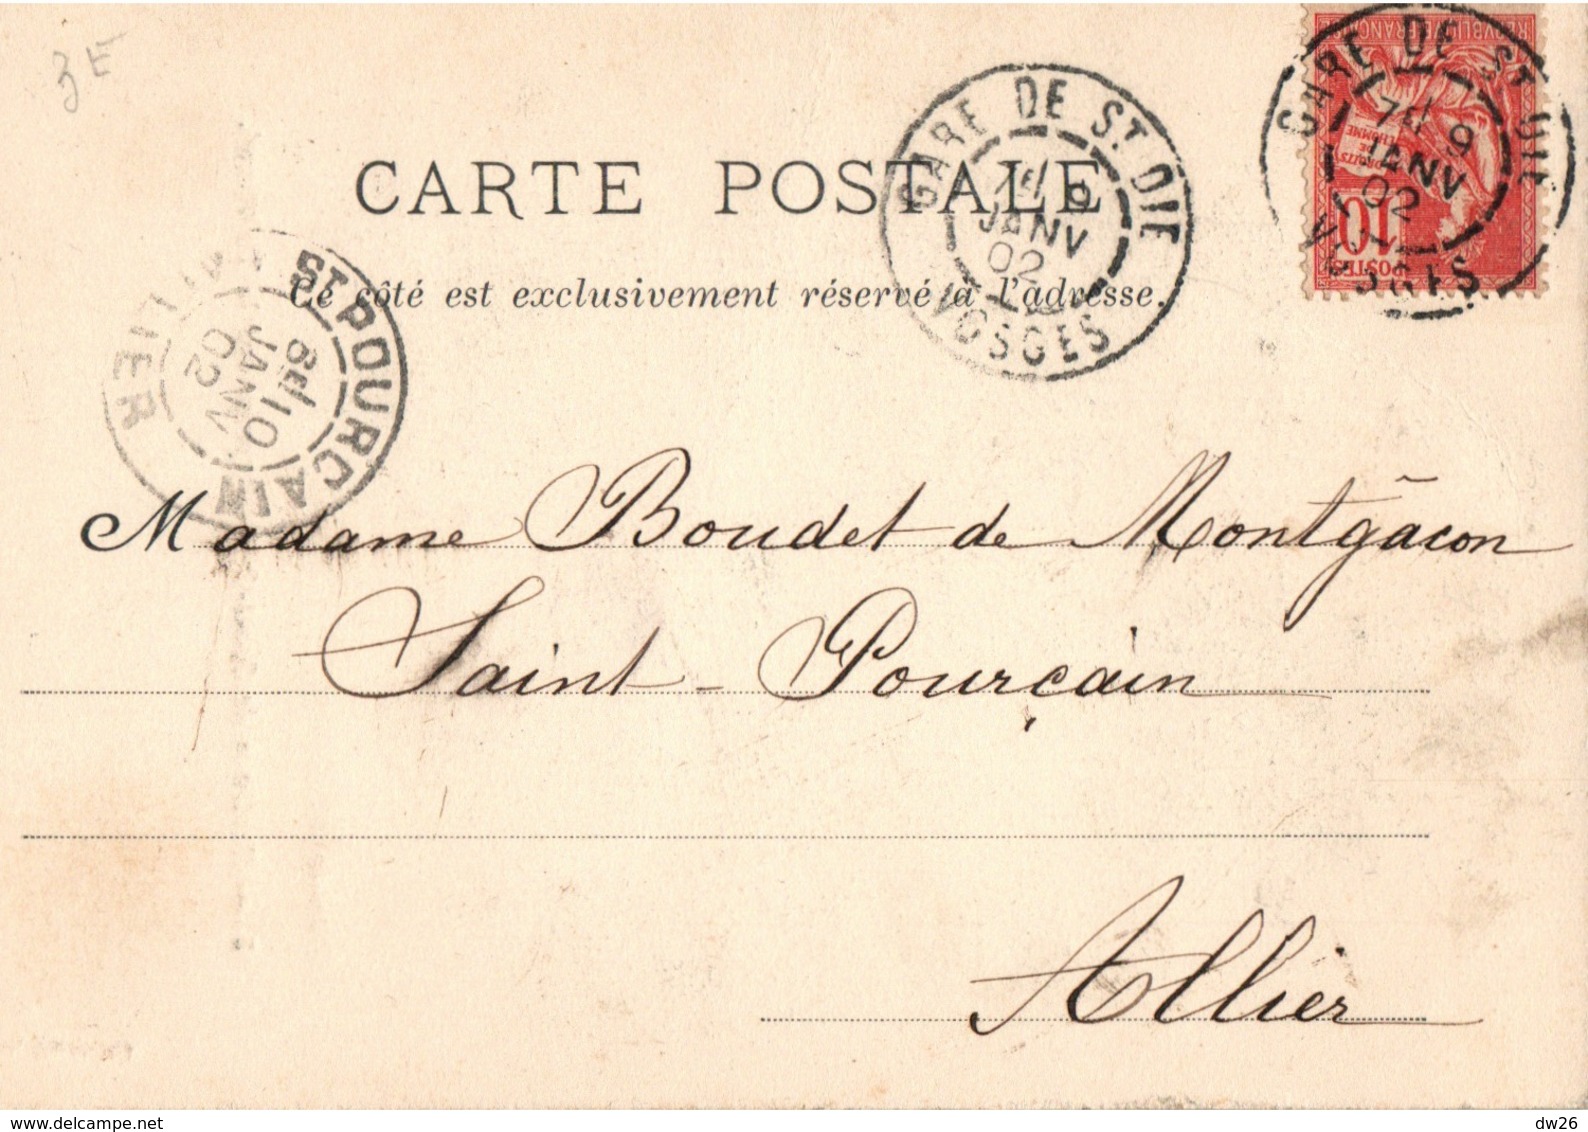 3E
CARTE POSTALE
Ce côté est exclusivement réservé à l'adresse.
GARE DE ST DIÉ
9
JANV
02
VOSGES
REPUBLIQUE FRANÇAISE
DROITS
DE
L'HOMME
10
POSTES
GARE DE ST DIÉ
7E 9
JANV
02
VOSGES
ST POURCAIN
8E 10
JANV
02
ALLIER
Madame Boudet de Montgâcon
Saint-Pourçain
Allier
www.delcampe.net
dw26